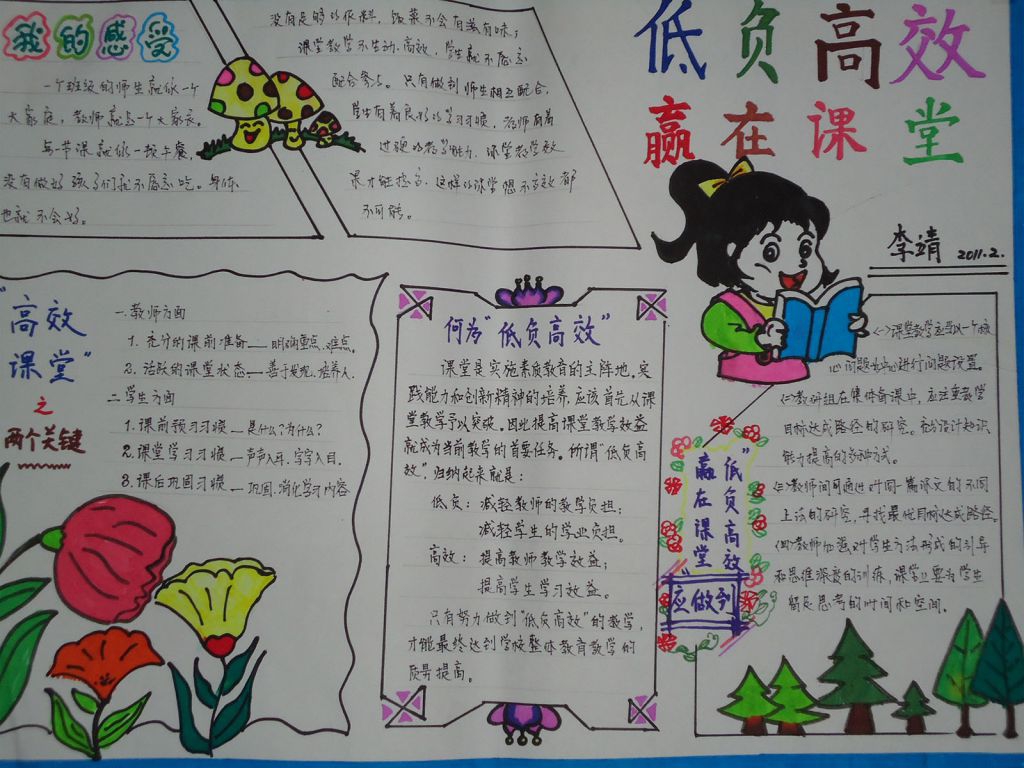 低负高效
赢在课堂
李靖 2011.2.
我的感受
一个班级的师生就似一个
大家庭，教师就是一个大家长。
每一节课就似一顿午餐，
没有做好孩子们就不愿意吃。身体
也就不会好。
没有足够的作料，饭菜不会有滋有味；
课堂教学不生动、高效，学生就不愿意
配合参与。只有做到师生相互配合，
学生有着良好的学习习惯，老师有着
过硬的教学能力，课堂教学效
果才能提高，这样的课堂想不高效都
不可能。
"高效
课堂"
之
两个关键
一.教师方面
1.充分的课前准备——明确重点、难点。
2.活跃的课堂状态——善于发现、培养人.
二.学生方面
1.课前预习习惯——是什么？为什么？
2.课堂学习习惯——声声入耳，字字入目.
3.课后巩固习惯——巩固、消化学习内容
何为"低负高效"
课堂是实施素质教育的主阵地。实
践能力和创新精神的培养，应该首先从课
堂教学予以突破。因此提高课堂教学效益
就成为当前教学的首要任务。所谓"低负高
效"，归纳起来就是：
低负：减轻教师的教学负担；
减轻学生的学业负担。
高效：提高教师教学效益；
提高学生学习效益。
只有努力做到"低负高效"的教学，
才能最终达到学校整体教育教学的
质量提高。
"低负高效
赢在课堂"
应做到
㈠课堂教学应要以一个核
心问题为中心进行问题设置。
㈡教研组在集体备课中，应注重教学
目标达成路径的研究。充分设计知识
能力提高的多种方式。
㈢教师间可通过对同一篇课文的不同
上法的研究，寻找最优目标达成路径。
㈣教师加强对学生方法形成的引导
和思维深度的训练，课堂上要为学生
留足思考的时间和空间。